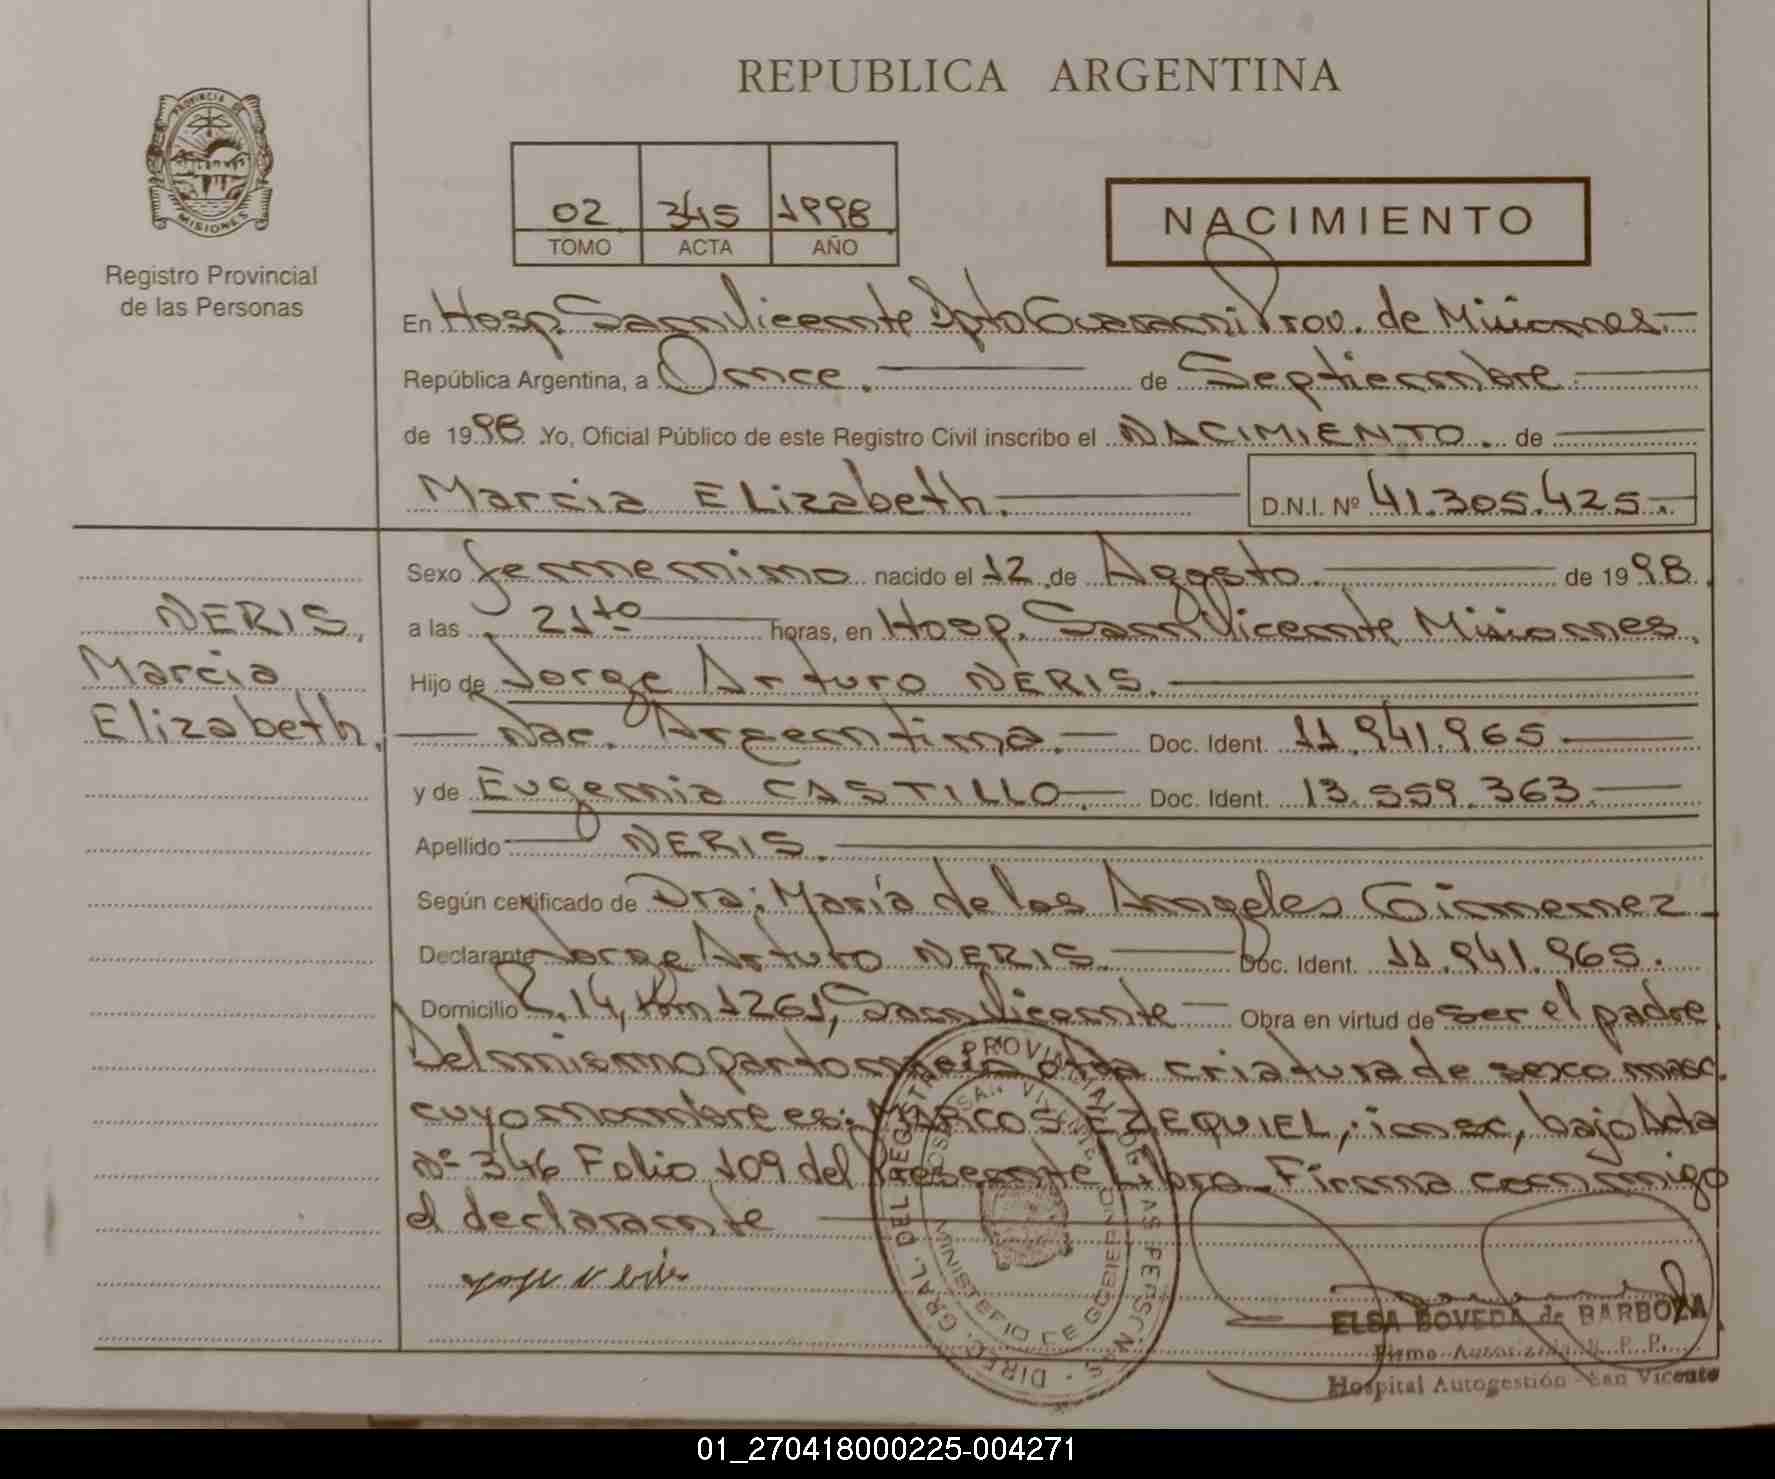 REPUBLICA ARGENTINA
PROVINCIA DE
MISIONES
Registro Provincial
de las Personas
02 345 1998
TOMO ACTA AÑO
NACIMIENTO
En Hosp. San Vicente Dpto Guarani Prov. de Misiones.
República Argentina, a Once. de Septiembre.
de 1998. Yo, Oficial Público de este Registro Civil inscribo el NACIMIENTO. de
Marcia ELizabeth. D.N.I. Nº 41.305.425.
Sexo femenino nacido el 12 de Agosto. de 1998.
NERIS, a las 21to horas, en Hosp. San Vicente Misiones.
Marcia Hijo de Jorge Arturo NERIS.
Elizabeth. Nac. Argentina. Doc. Ident. 11.941.965
y de Eugenia CASTILLO. Doc. Ident. 13.559.363
Apellido NERIS.
Según certificado de Dra; María de los Angeles Gimenez
Declarante Jorge Arturo NERIS. Doc. Ident. 11.941.965.
Domicilio 14, Km 1261, San Vicente Obra en virtud de ser el padre
Del mismo parto otra criatura de sexo masc.
cuyo nombre es: MARCOS EZEQUIEL, insc, bajo Acta
Nº 346 Folio 109 del Presente Libro. Firma conmigo
el declarante
DIREC. GRAL. DEL REGISTRO PROVINCIAL DE LAS PERSONAS
MINISTERIO DE GOBIERNO
ELSA BOVEDA de BARBOZA
Firma Autorizada R. P. P.
Hospital Autogestión San Vicente
01_270418000225-004271